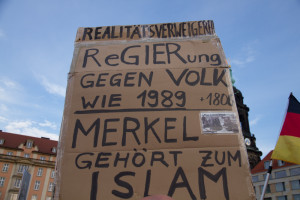 REALITÄTSVERWEIGERER
ReGIERung
GEGEN VOLK
WIE 1989
MERKEL
GEHÖRT ZUM
ISLAM